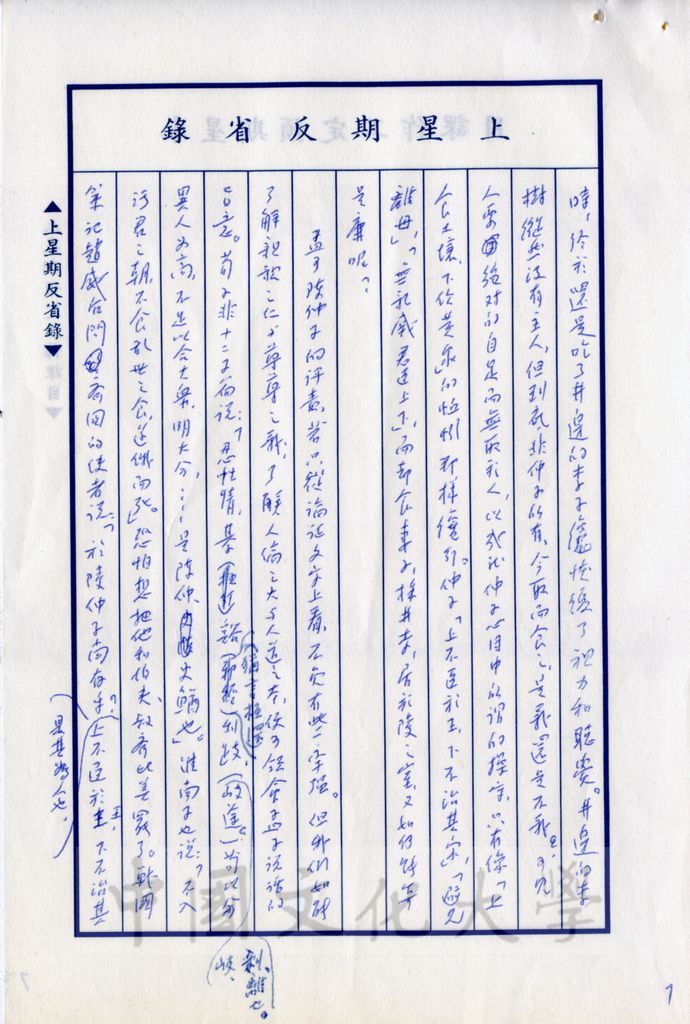 上星期反省錄
時，終於還是吃了井邊的李子纔恢復了視力和聽覺。井邊的李
樹縱然沒有主人，但到底非仲子所有，今取而食之，是義還是不義？可見
人要絕對的自足而無取於人，以我仲子心目中所謂的操守，只有像「上
食土壤，下飲黃泉」的蚯蚓那樣纔行。仲子「上不臣於王，下不治其家」，「避兄
離母」，「無親戚君臣上下」，而卻食妻子，採井李，居於陵之室，又如何能算
是廉呢？
孟子陳仲子的評責，若只從論證文字上看，不免有些牽強。但我們如能
了解親親之仁與尊尊之義，了解人倫之大與人道之本，便可領會孟子說話的
旨意。荀子非十二子篇說：「忍性情，綦谿利跂，苟以分
異人為高，不足以合大眾，明大分，……是陳仲、史鰌也。」淮南子也說：「不入
洿君之朝，不食亂世之食，遂餓而死。」恐怕想把他和伯夷、叔齊比美罷了。戰國
策記趙威后問齊國的使者說：「於陵仲子尚存乎？上不臣於王，下不治其
是其為人也，
(猶言極深
(歧途)
剝離也。
▲上星期反省錄▼
中國文化大學
7